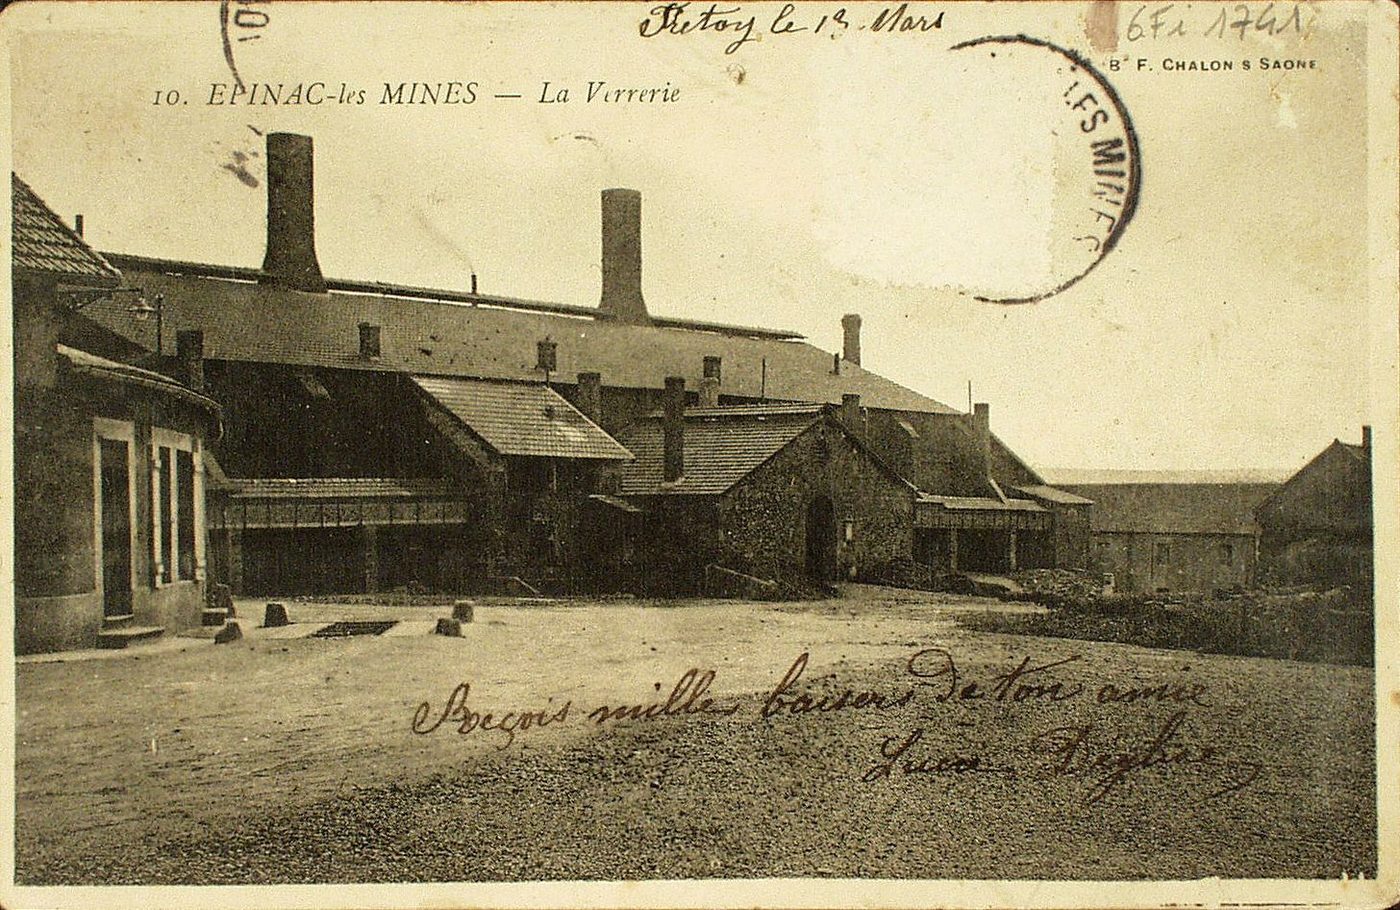 Fretoy le 13 Mars
6Fi 1741
B F. CHALON S SAONE
10. EPINAC-les MINES — La Verrerie
LES MINES
Reçois mille baisers De ton amie